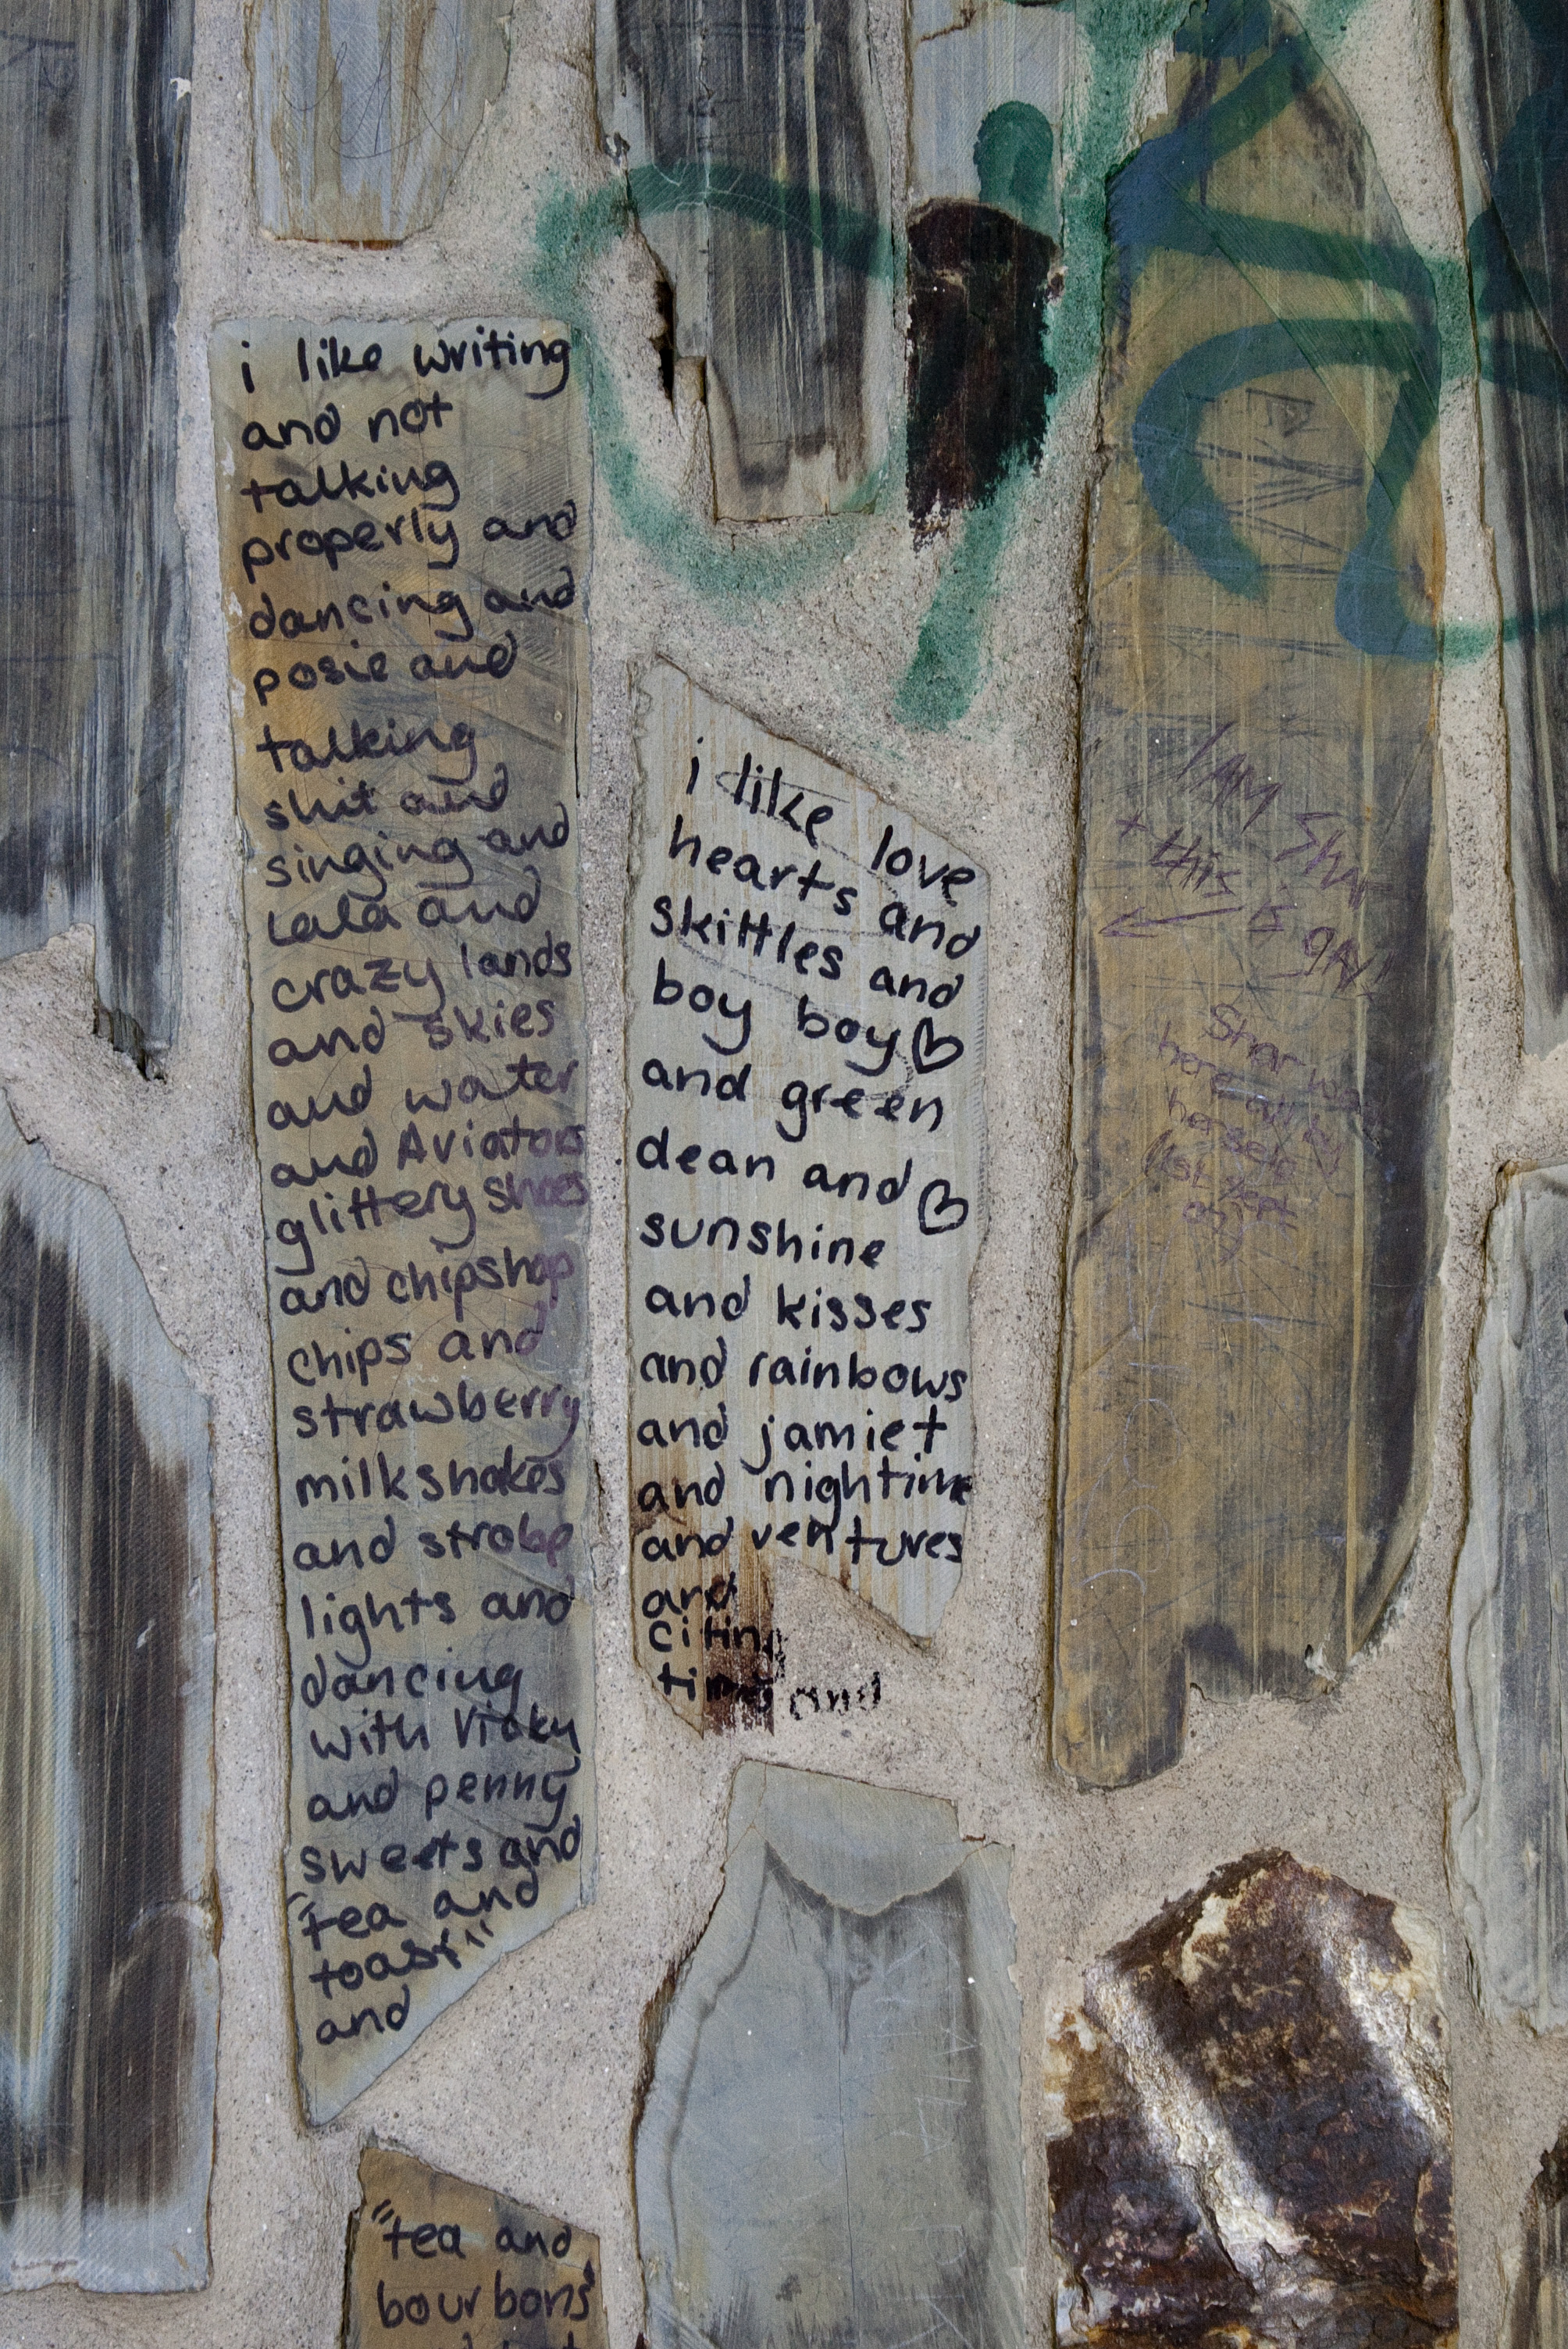 i like writing
and not
talking
properly and
dancing and
posie and
talking
shit and
singing and
Lala and
crazy lands
and skies
and water
and Aviators
glittery shoes
and chipshop
chips and
strawberry
milkshakes
and strobe
lights and
dancing
with Vicky
and penny
sweets and
"tea and
toast"
and
"tea and
bourbons"
i like love
hearts and
skittles and
boy boy ♡
and green
dean and ♡
sunshine
and kisses
and rainbows
and jamie t
and nightime
and ventures
and
citing
time and
I AM Shar
+ this is
Shar was
here all by
herself
1st Sept